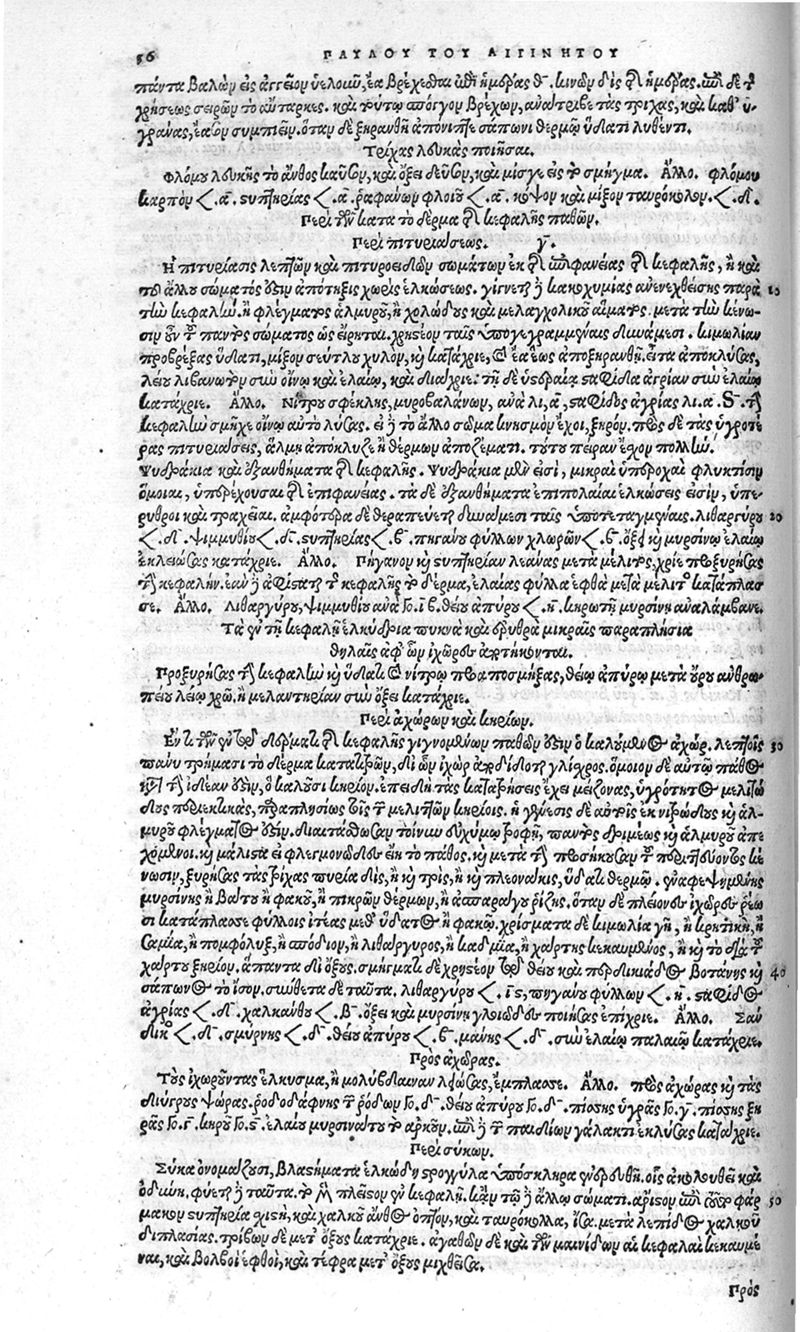 56 ΠΑΥΛΟΥ ΤΟΥ ΑΙΓΙΝΗΤΟΥ
πάντα βαλὼν εἰς ἀγγεῖον ὑελοῦν, ἔα βρέχεσθαι ἐπὶ ἡμέρας δ. κινῶν δὶς τῆς ἡμέρας. ἐπὶ δὲ τῆς
χρήσεως σειρῶν τὸ αὔταρκες. καὶ τούτῳ σπόγγον βρέχων, ἀνάτριβε τὰς τρίχας, καὶ καθ’ ὑ-
γράνας, ἔασον συμπιεῖν. ὅταν δὲ ξηρανθῇ ἀπόνιπτε σάπωνι θερμῷ ὕδατι λυθέντι.
Τρίχας λευκὰς ποιῆσαι.
Φλόμου λευκῆς τὸ ἄνθος καῦσον, καὶ ὄξει δεῦσον, καὶ μίσγε εἰς τὸ σμῆγμα. Ἄλλο. φλόμου
καρπὸν <. α. στυπτηρίας <. α. ῥαφάνων φλοιοῦ <. α. κόψον καὶ μίξον ταυρόκολον. <. δ.
Περὶ τῶν κατὰ τὸ δέρμα τῆς κεφαλῆς παθῶν.
Περὶ πιτυριάσεως. γ.
Ἡ πιτυρίασις λεπτῶν καὶ πιτυροειδῶν σωμάτων ἐκ τῆς ἐπιφανείας τῆς κεφαλῆς, ἢ καὶ
τοῦ ἄλλου σώματος ἐστὶν ἀπότηξις χωρὶς ἑλκώσεως. γίγνεται δὲ κακοχυμίας ἀνενεχθείσης παρὰ 10
τὴν κεφαλὴν. ἢ φλέγματος ἁλμυροῦ, ἢ χολώδους καὶ μελαγχολικοῦ αἵματος. μετὰ τὴν κένω-
σιν οὖν τοῦ παντὸς σώματος ὡς εἴρηται. χρηστέον ταῖς ὑπογεγραμμέναις δυνάμεσι. κιμωλίαν
προβρέξας ὕδατι, μίξον σεύτλου χυλὸν, καὶ κατάχριε, καὶ ἔα ἕως ἀποξηρανθῇ. εἶτα ἀποκλύσας,
λείου λιβανωτὸν σὺν οἴνῳ καὶ ἐλαίῳ, καὶ διάχριε: τῇ δὲ ὑστεραίᾳ σταφίδα ἀγρίαν σὺν ἐλαίῳ
κατάχριε. Ἄλλο. Νίτρου σφέκλης, μυροβαλάνων, ἀνὰ λι, α, σταφίδος ἀγρίας λι. α. S. τὴν
κεφαλὴν σμῆχε οἴνῳ αὐτὸ λύσας. εἰ δὲ τὸ ἄλλο σῶμα κνησμὸν ἔχοι, ξηρόν. πρὸς δὲ τὰς ὑγροτέ
ρας πιτυριάσεις, ἅλμῃ ἀπόκλυζε ἢ θέρμων ἀποζέματι. τοῦτο πεῖραν ἔχον πολλήν.
Ψυδράκια καὶ ἐξανθήματα τῆς κεφαλῆς. Ψυδράκια μὲν εἰσὶ, μικραὶ ὑπεροχαὶ φλυκτίσιν
ὅμοιαι, ὑπερέχουσαι τῆς ἐπιφανείας. τὰ δὲ ἐξανθήματα ἐπιπολαίαι ἑλκώσεις εἰσὶν, ὑπέ-
ρυθροι καὶ τραχεῖαι. ἀμφότερα δὲ θεραπεύεται δυνάμεσι ταῖς ὑποτεταγμέναις. λιθαργύρου 20
<. δ. ψιμμυθίου <. δ. στυπτηρίας <. β. πηγάνου φύλλων χλωρῶν <. β. ὄξει καὶ μυρσίνῳ ἐλαίῳ
ἐκλειώσας κατάχριε. Ἄλλο. Πήγανον καὶ στυπτηρίαν λεάνας μετὰ μέλιτος, χρῖε προξυρήσας
τὴν κεφαλήν. ἐὰν δὲ ἀφίσταται τῆς κεφαλῆς τὸ δέρμα, ἐλαίας φύλλα ἑφθὰ μετὰ μέλιτος κατάπλασ
σε. Ἄλλο. Λιθαργύρου, ψιμμυθίου ἀνὰ Γο. ιβ. θείου ἀπύρου <. η. κηρωτῇ μυρσίνῃ ἀναλάμβανε.
Τὰ ἐν τῇ κεφαλῇ ἑλκύδρια πυκνὰ καὶ ἐρυθρὰ μικραῖς παραπλήσια
θηλαῖς ἀφ’ ὧν ἰχῶρες ἐκκρίνονται.
Προξυρήσας τὴν κεφαλὴν καὶ ὕδατι καὶ νίτρῳ προαποσμήξας, θείῳ ἀπύρῳ μετὰ οὔρου ἀνθρω-
πείου λείῳ χρῶ. ἢ μελαντηρίαν σὺν ὄξει κατάχριε.
Περὶ ἀχώρων καὶ κηρίων.
Ἕν τι τῶν ἐν τῷ δέρματι τῆς κεφαλῆς γιγνομένων παθῶν ἐστὶν ὁ καλούμενος ἀχώρ. λεπτοῖς 30
πάνυ τρήμασι τὸ δέρμα κατατιτρῶν, δι’ ὧν ἰχὼρ ἐκδίδοται γλίσχρος. ὅμοιον δὲ αὐτῷ πάθος
κατὰ τὴν ἰδέαν ἐστὶν, ὃ καλοῦσι κηρίον. ἐπειδὴ τὰς κατατρήσεις ἔχει μείζονας, ὑγρότητος μελιτώ
δους περιεκτικὰς, παραπλησίως τοῖς τῶν μελιττῶν κηρίοις. ἡ γένεσις δὲ αὐτοῖς ἐκ νιτρώδους καὶ ἁλ-
μυροῦ φλέγματος ἐστίν. διαιτάσθωσαν τοίνυν εὐχύμῳ τροφῇ, παντὸς δριμέως καὶ ἁλμυροῦ ἀπε
χόμενοι. καὶ μάλιστα εἰ φλεγμονῶδες εἴη τὸ πάθος. καὶ μετὰ τὴν προσήκουσαν τοῦ περιττεύοντος κέ-
νωσιν, ξυρήσας τὰς τρίχας πυρία δὶς, ἢ καὶ τρὶς, ἢ καὶ πλεονάκις, ὕδατι θερμῷ. ἐναφεψημένης
μυρσίνης ἢ βάτου ἢ φακοῦ, ἢ πικρῶν θέρμων, ἢ ἀσπαράγου ῥίζης. ὅταν δὲ πλείονες ἰχῶρες ῥέω
σι κατάπλασσε φύλλοις ἰτέας μεθ’ ὕδατος ἢ φακῷ. χρίσματα δὲ κιμωλία γῆ, ἢ κρητικὴ, ἢ
σαμία, ἢ πομφόλυξ, ἢ σπόδιον, ἢ λιθάργυρος, ἢ καδμία, ἢ χάρτης κεκαυμένος, ἢ καὶ τὸ διὰ τοῦ
χάρτου ξηρίον. ἅπαντα δι’ ὄξους. σμήγματι δὲ χρηστέον τῷ θείου καὶ περδικιάδος βοτάνης καὶ 40
σάπωνος τὸ ἴσον. σύνθετα δὲ ταῦτα. λιθαργύρου <. ις, πηγάνου φύλλων <. η. σταφίδος
ἀγρίας <. δ. χαλκάνθου <. β. ὄξει καὶ μυρσίνῃ γλοιῶδες ποιήσας ἐπίχριε. Ἄλλο. Σαν
δικος <. δ. σμύρνης <. δ. θείου ἀπύρου <. β. μάνης <. δ. σὺν ἐλαίῳ παλαιῷ κατάχριε.
Πρὸς ἀχῶρας.
Τοὺς ἰχωροῦντας ἕλκυσμα, ἢ μολύβδαιναν λειώσας, ἔμπλασσε. Ἄλλο. πρὸς ἀχώρας καὶ τὰς
διύγρους ψώρας. ῥοδοδάφνης τῶν ῥόδων Γο. δ. θείου ἀπύρου Γο. δ. πίσσης ὑγρᾶς Γο. γ. πίσσης ξη
ρᾶς Γο. ς. κηροῦ Γο. ς. ἐλαίου μυρσινάτου τὸ ἀρκοῦν. ἐπὶ δὲ τῶν παιδίων γάλακτι ἐκλύσας κατάχριε.
Περὶ σύκων.
Σῦκα ὀνομάζουσι, βλαστήματα ἑλκώδη στρογγύλα ὑπόσκληρα ἐνέρευθῆ. οἷς ἀκολουθεῖ καὶ
ὀδύνη. φύεται δὲ ταῦτα. τὸ μὲν πλεῖστον ἐν κεφαλῇ. κἂν τῷ δὲ ἄλλῳ σώματι. ἄριστον ἐπὶ τούτων φάρ 50
μακον στυπτηρία σχιστὴ, καὶ χαλκοῦ ἄνθος ὀπτὸν, καὶ ταυρόκολλα, ἴσα. μετὰ λεπίδος χαλκοῦ
διπλασίας. τρίβων δὲ μετ’ ὄξους κατάχριε. ἀγαθὸν δὲ καὶ τῶν μαινίδων αἱ κεφαλαὶ κεκαυμέ
ναι, καὶ βολβοὶ ἑφθοὶ, καὶ τέφρα μετ’ ὄξους μιχθεῖσα.
Πρὸς